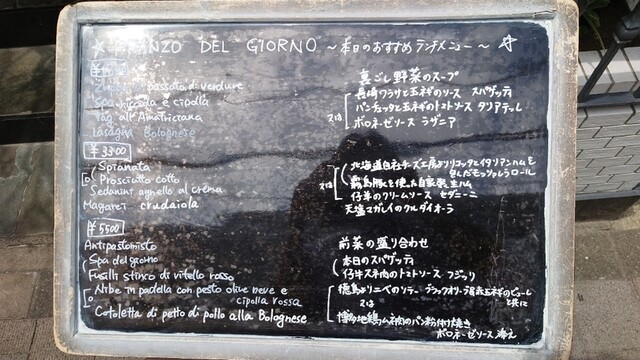 PRANZO DEL GIORNO ～本日のおすすめランチメニュー～
passata di verdure
Spa ricciola e cipolla
Tag all'Amatriciana
Lasagna Bolognese
裏ごし野菜のスープ
長崎ワラサと玉ネギのソース スパゲッティ
又は
パンチェッタと玉ネギのトマトソース タリアテッレ
ボロネーゼソース ラザニア
¥3300
Spianata
o
Prosciutto cotto
Sedanini agnello al crema
Magarei crudaiola
北海道白社チーズ工房よりリコッタとイタリアンハムを
包んだモッツァレラロール
又は
霧島豚を使った自家製生ハム
仔羊のクリームソース セダニーニ
天塩マガレイのクルダイオーラ
¥5500
Antipastomisto
Spa del giorno
Fusilli stinco di vitello rosso
o
in padella con pesto olive nere e
cipolla rossa
Cotoletta di petto di pollo alla Bolognese
前菜の盛り合わせ
本日のスパゲッティ
仔牛スネ肉のトマトソース フジッリ
徳島よりニベのソテー ブラックオリーブと赤玉ネギのピューレ
と共に
又は
博多地鶏ムネ肉のパン粉付け焼き
ボロネーゼソース添え